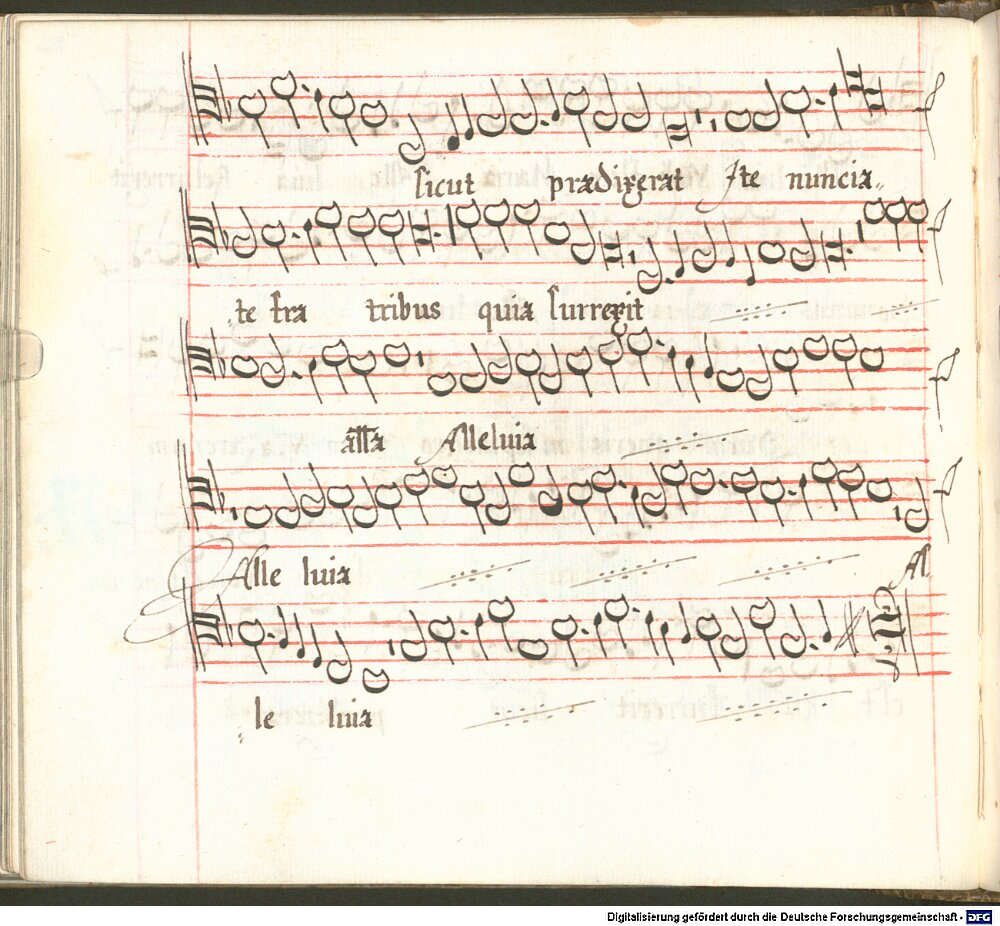 sicut prædixerat Ite nuncia„
„te fra tribus quia surrexit
aĩa Alleluia
Alle luia Al„
„le luia
Digitalisierung gefördert durch die Deutsche Forschungsgemeinschaft - DFG